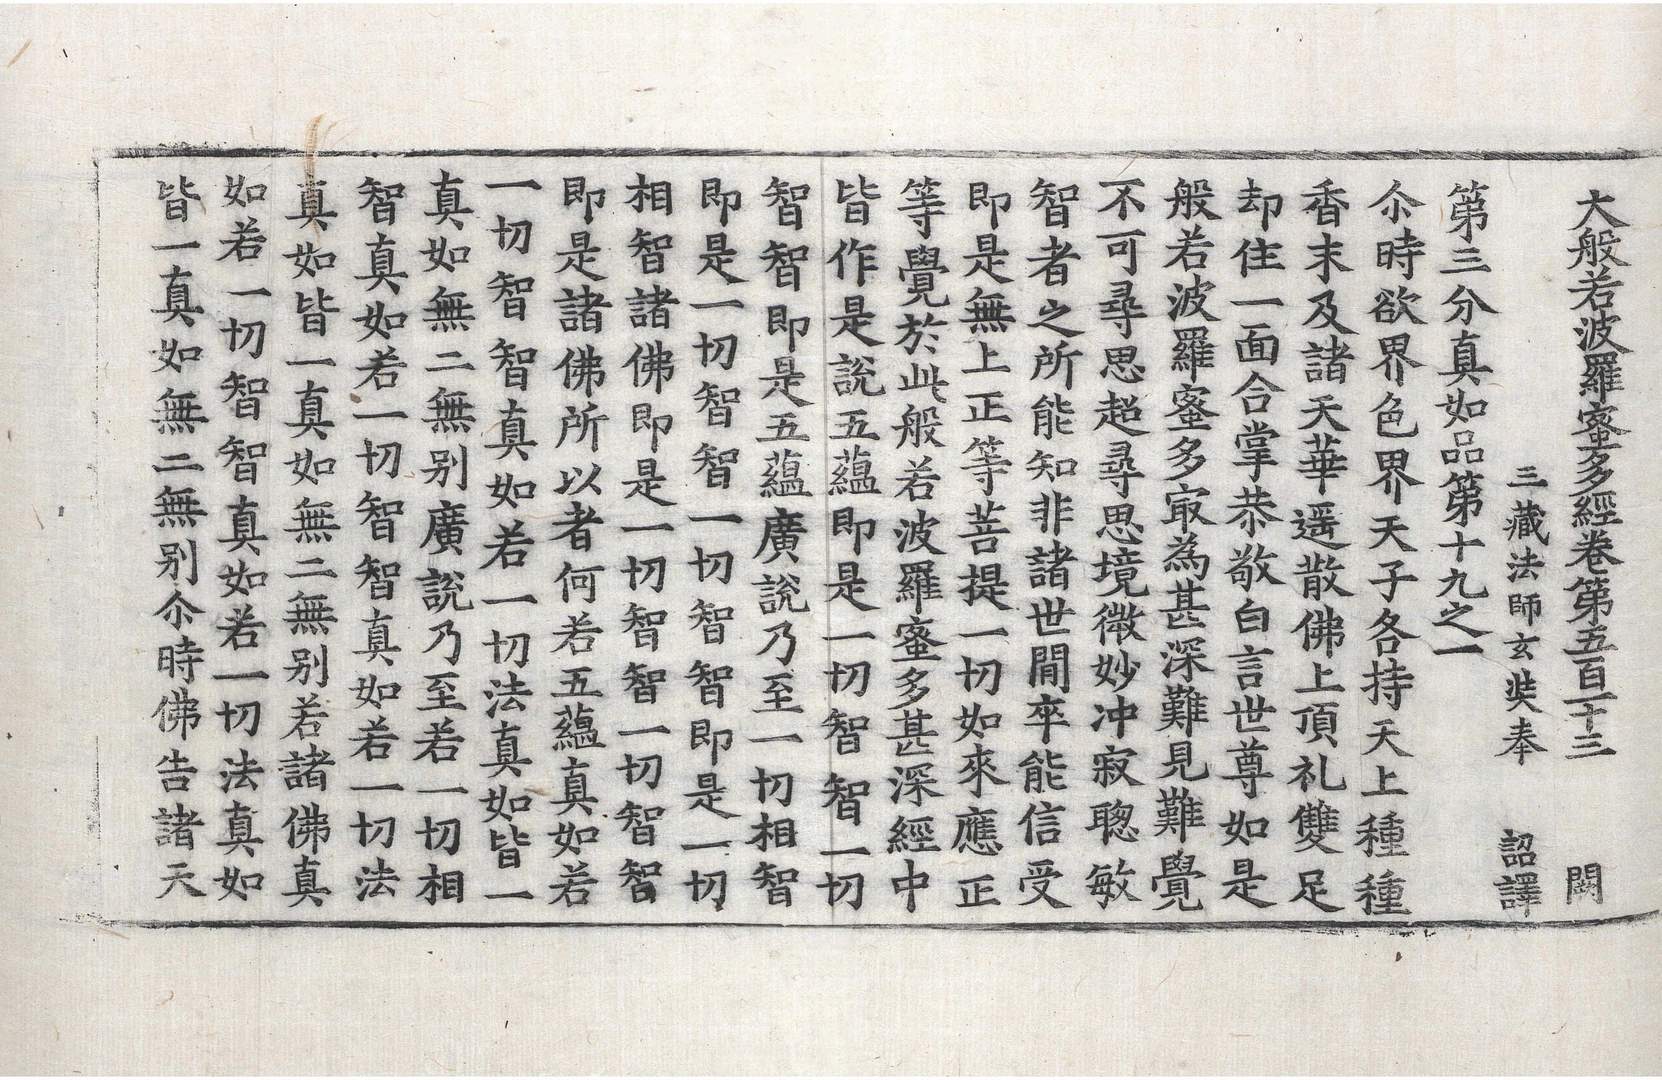 大般若波羅蜜多經卷第五百一十三　闕
三藏法師玄奘奉　詔譯
第三分真如品第十九之一
尒時欲界色界天子各持天上種種
香末及諸天華遥散佛上頂礼雙足
却住一面合掌恭敬白言世尊如是
般若波羅蜜多㝡為甚深難見難覺
不可尋思超尋思境微妙冲寂聦敏
智者之所能知非諸世間卒能信受
即是無上正等菩提一切如來應正
等覺於此般若波羅蜜多甚深經中
皆作是說五蘊即是一切智智一切
智智即是五蘊廣說乃至一切相智
即是一切智智一切智智即是一切
相智諸佛即是一切智智一切智智
即是諸佛所以者何若五蘊真如若
一切智智真如若一切法真如皆一
真如無二無別廣說乃至若一切相
智真如若一切智智真如若一切法
真如皆一真如無二無別若諸佛真
如若一切智智真如若一切法真如
皆一真如無二無別尒時佛告諸天